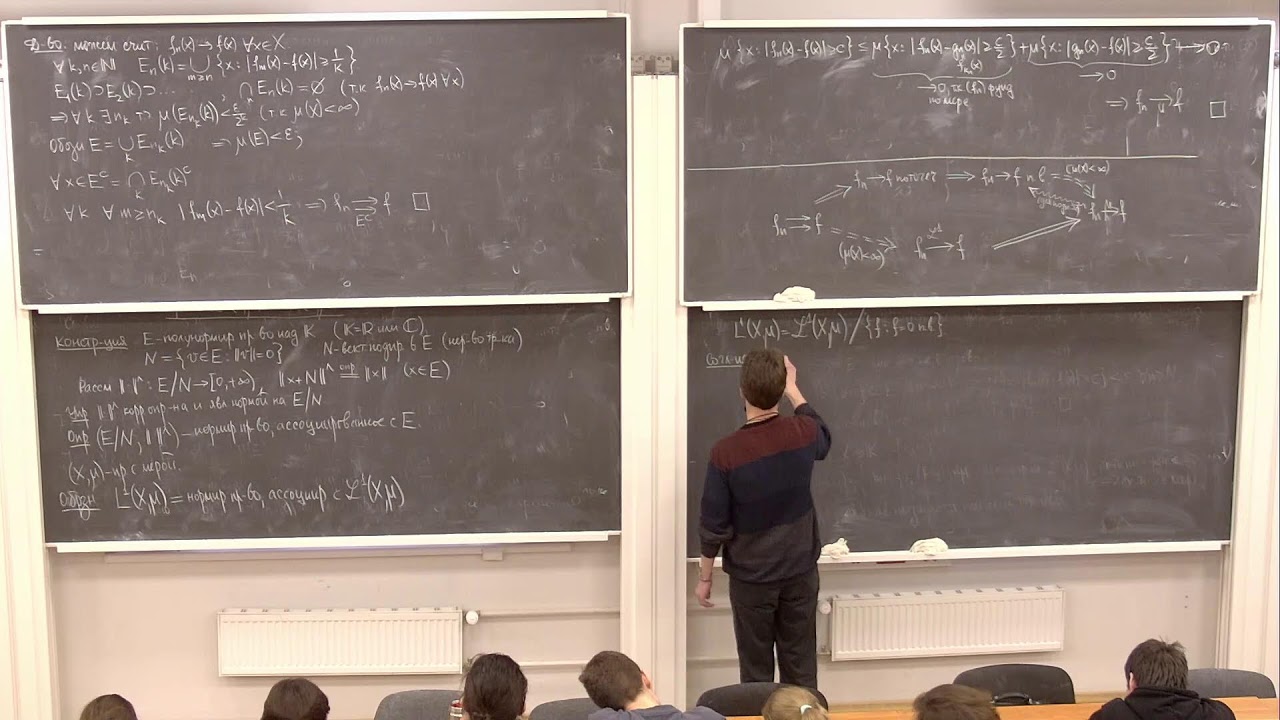 Д-во: можем счит: fₙ(x)→f(x) ∀x∈X
∀k,n∈ℕ Eₙ(k)=⋃_{m≥n} {x: |fₘ(x)-f(x)|≥1/k}
E₁(k)⊃E₂(k)⊃..., ⋂ₙEₙ(k)=∅ (т.к. fₙ(x)→f(x) ∀x)
⇒ ∀k ∃nₖ μ(E_{nₖ}(k))<ε/2ᵏ (т.к μ(X)<∞)
Обозн E=⋃ₖE_{nₖ}(k) ⇒ μ(E)<ε;
∀x∈Eᶜ=⋂ₖE_{nₖ}(k)ᶜ
∀k ∀m≥nₖ |fₘ(x)-f(x)|<1/k ⇒ fₙ⇉f □
Eᶜ
Констр-ция E-полунормир пр-во над 𝕂 (𝕂=ℝ или ℂ).
N={v∈E: ‖v‖=0} N-вект подпр в E (нер-во тр-ка)
Рассм ‖·‖^: E/N→[0,+∞), ‖x+N‖^ опр= ‖x‖ (x∈E)
Упр ‖·‖^ корр опр-на и явл нормой на E/N
Опр (E/N, ‖·‖^)-нормир пр-во, ассоциированное с E.
(X,μ)-пр с мерой.
Обозн L¹(X,μ)=нормир пр-во, ассоциир с ℒ¹(X,μ)
μ{x: |fₙ(x)-f(x)|≥c}≤μ{x: |fₙ(x)-gₙ(x)|≥c/2}+μ{x: |gₙ(x)-f(x)|≥c/2}→0
f_{kₙ}(x)
→0, тк (fₙ) фунд
по мере
→0
⇒ fₙ →μ f □
fₙ→f поточеч ⇒ fₙ→f п.в (μ(X)<∞)
fₙ⇉f
fₙ →μ f
(μ(X)<∞) fₙ →ℒ¹ f
L¹(X,μ)=ℒ¹(X,μ)/{f: f=0 п.в}